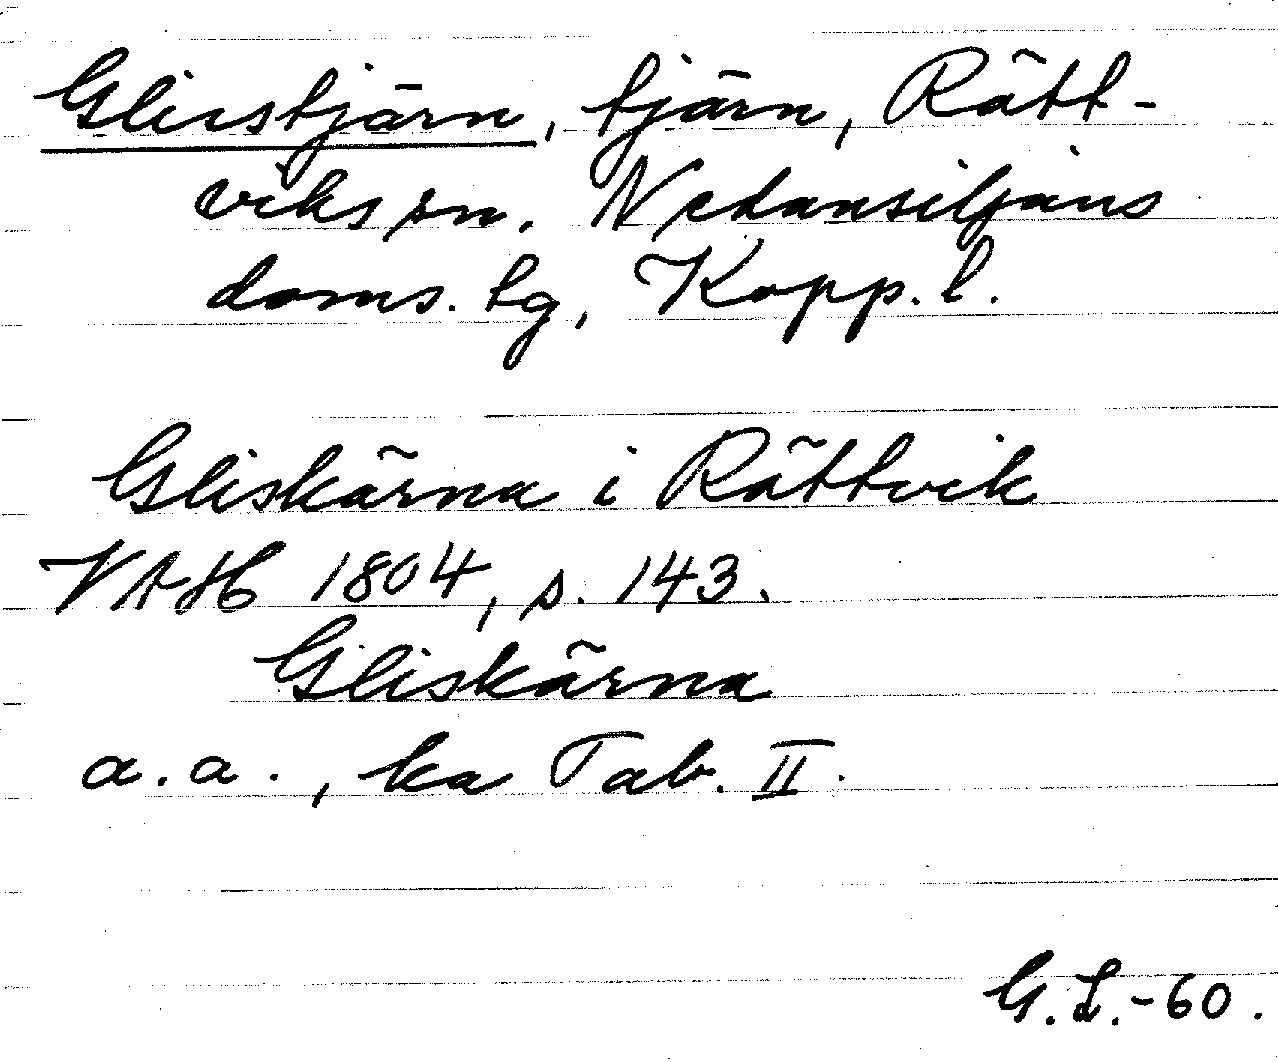 Glisstjärn, tjärn, Rätt-
viks sn. Nedansiljans
doms. tg, Kopp. l.
Gliskärna i Rättvik
VAH 1804, s. 143.
Gliskärna
a. a., ka Tab. II.
G. L. -60.